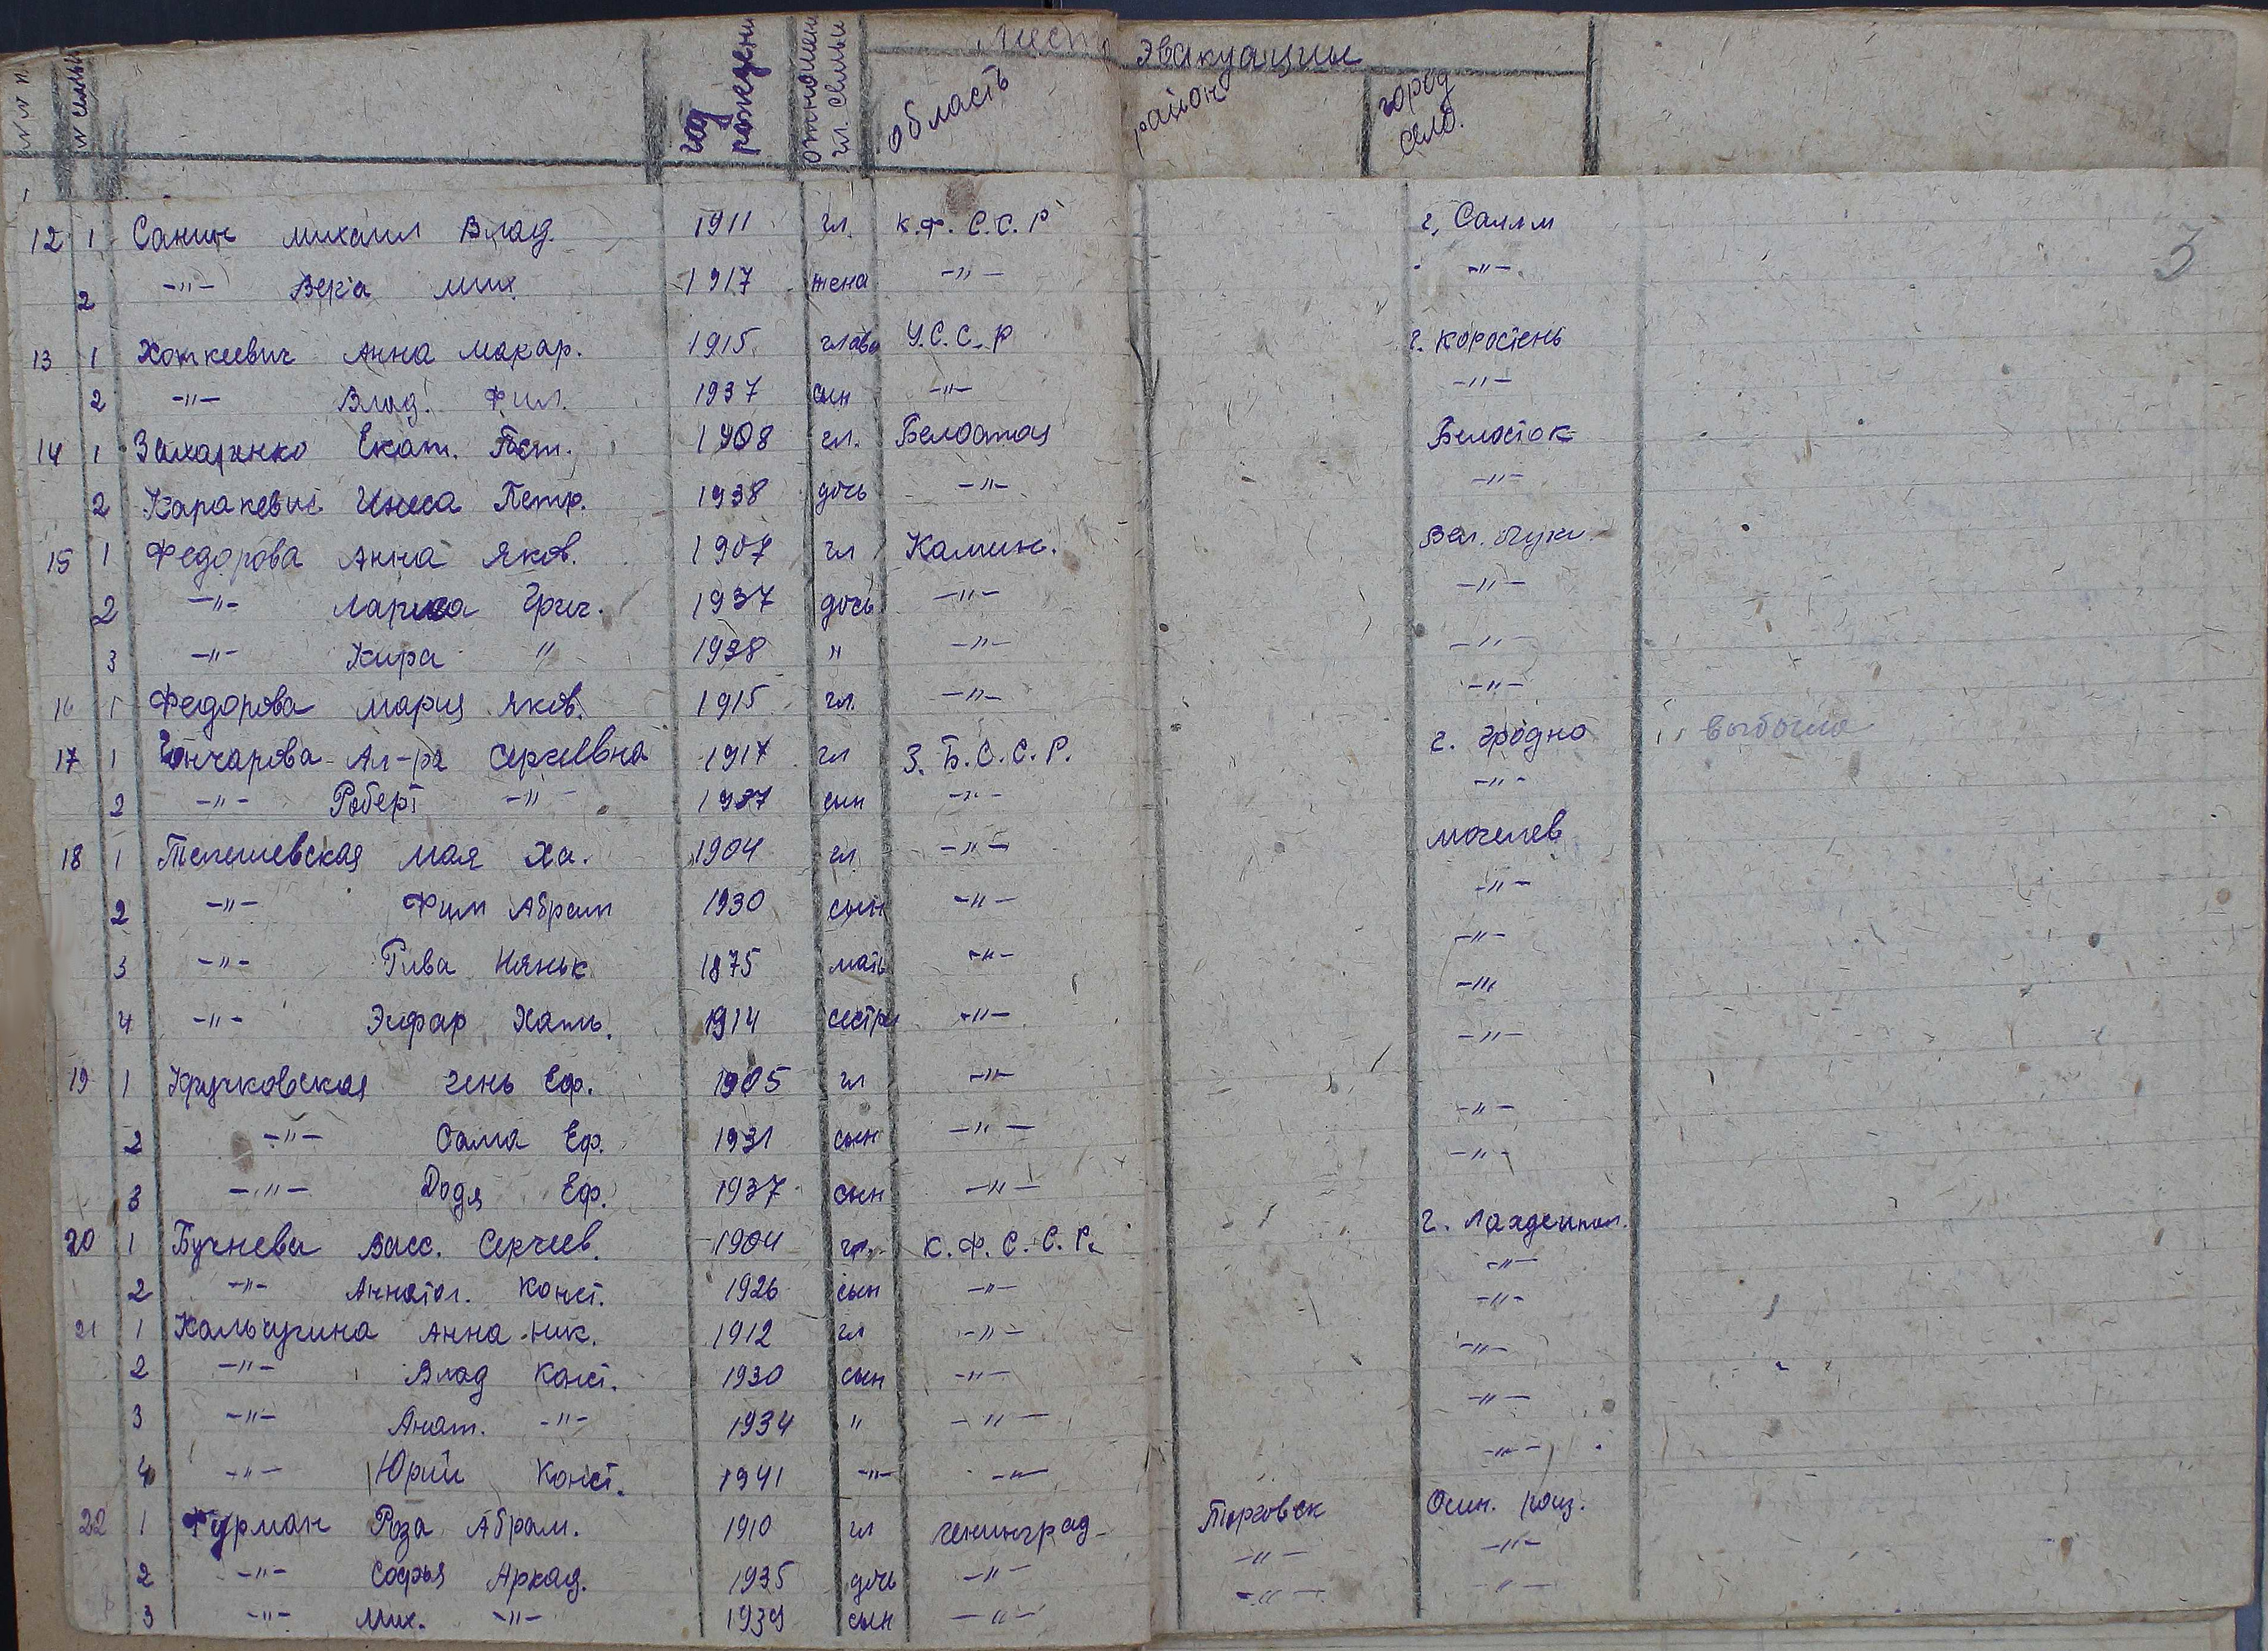 Место эвакуации
№ № п.
№ семьи
год рождени
отношен гл. семьи
область
район
город село.
3
12 1 Санин Михаил Влад. 1911 гл. К.Ф.С.С.Р г.
2 -"- Вера Мих. 1917 жена -"- -"-
13 1 Хоткевич Анна Макар. 1915 глава У.С.С.Р г. Коростень
2 -"- Влад. Фил. 1937 сын -"- -"-
14 1 Захаренко Екат. 1908 гл. Белосток
2 Каракевич Инеса Петр. 1938 дочь -"- -"-
15 1 Федорова Анна Яков. 1907 гл Калин. Вел. Луки
2 -"- Лариса Григ. 1937 дочь -"- -"-
3 -"- Кира " 1938 " -"- -"-
16 1 Федорова Мария Яков. 1915 гл. -"- -"-
17 1 Гончарова Ал-ра Сергеевна 1917 гл З.Б.С.С.Р. г. Гродно выбыла
2 -"- Роберт -"- 1937 сын -"- -"-
18 1 Мая Ха. 1904 гл -"- Могелев
2 -"- Фим Абрам 1930 сын -"- -"-
3 -"- Рива 1875 мать -"- -"-
4 -"- 1914 сестра -"- -"-
19 1 Кручковская Гень Еф. 1905 гл -"- -"-
2 -"- Сама Еф. 1931 сын -"- -"-
3 -"- Додя Еф. 1937 сын -"- -"-
20 1 Бугнева Васс. Сергеев. 1904 гл. К.Ф.С.С.Р. г. Лахденпох.
2 -"- Аннатол. Конст. 1926 сын -"- -"-
21 1 Кальчугина Анна Ник. 1912 гл -"- -"-
2 -"- Влад Конст. 1930 сын -"- -"-
3 -"- Анат. -"- 1934 " -"- -"-
4 -"- Юрий Конст. 1941 -"- -"- -"-
22 1 Фурман Роза Абрам. 1910 гл Ленинград Осин. рощ.
2 -"- Софья Аркад. 1935 дочь -"- -"- -"-
3 -"- Мих. -"- 1939 сын -"- -"- -"-